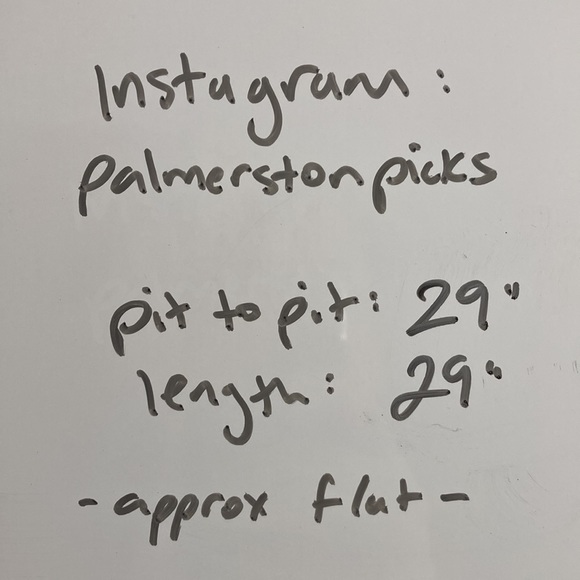 Instagram:
palmerstonpicks
pit to pit: 29"
length: 29"
- approx flat -